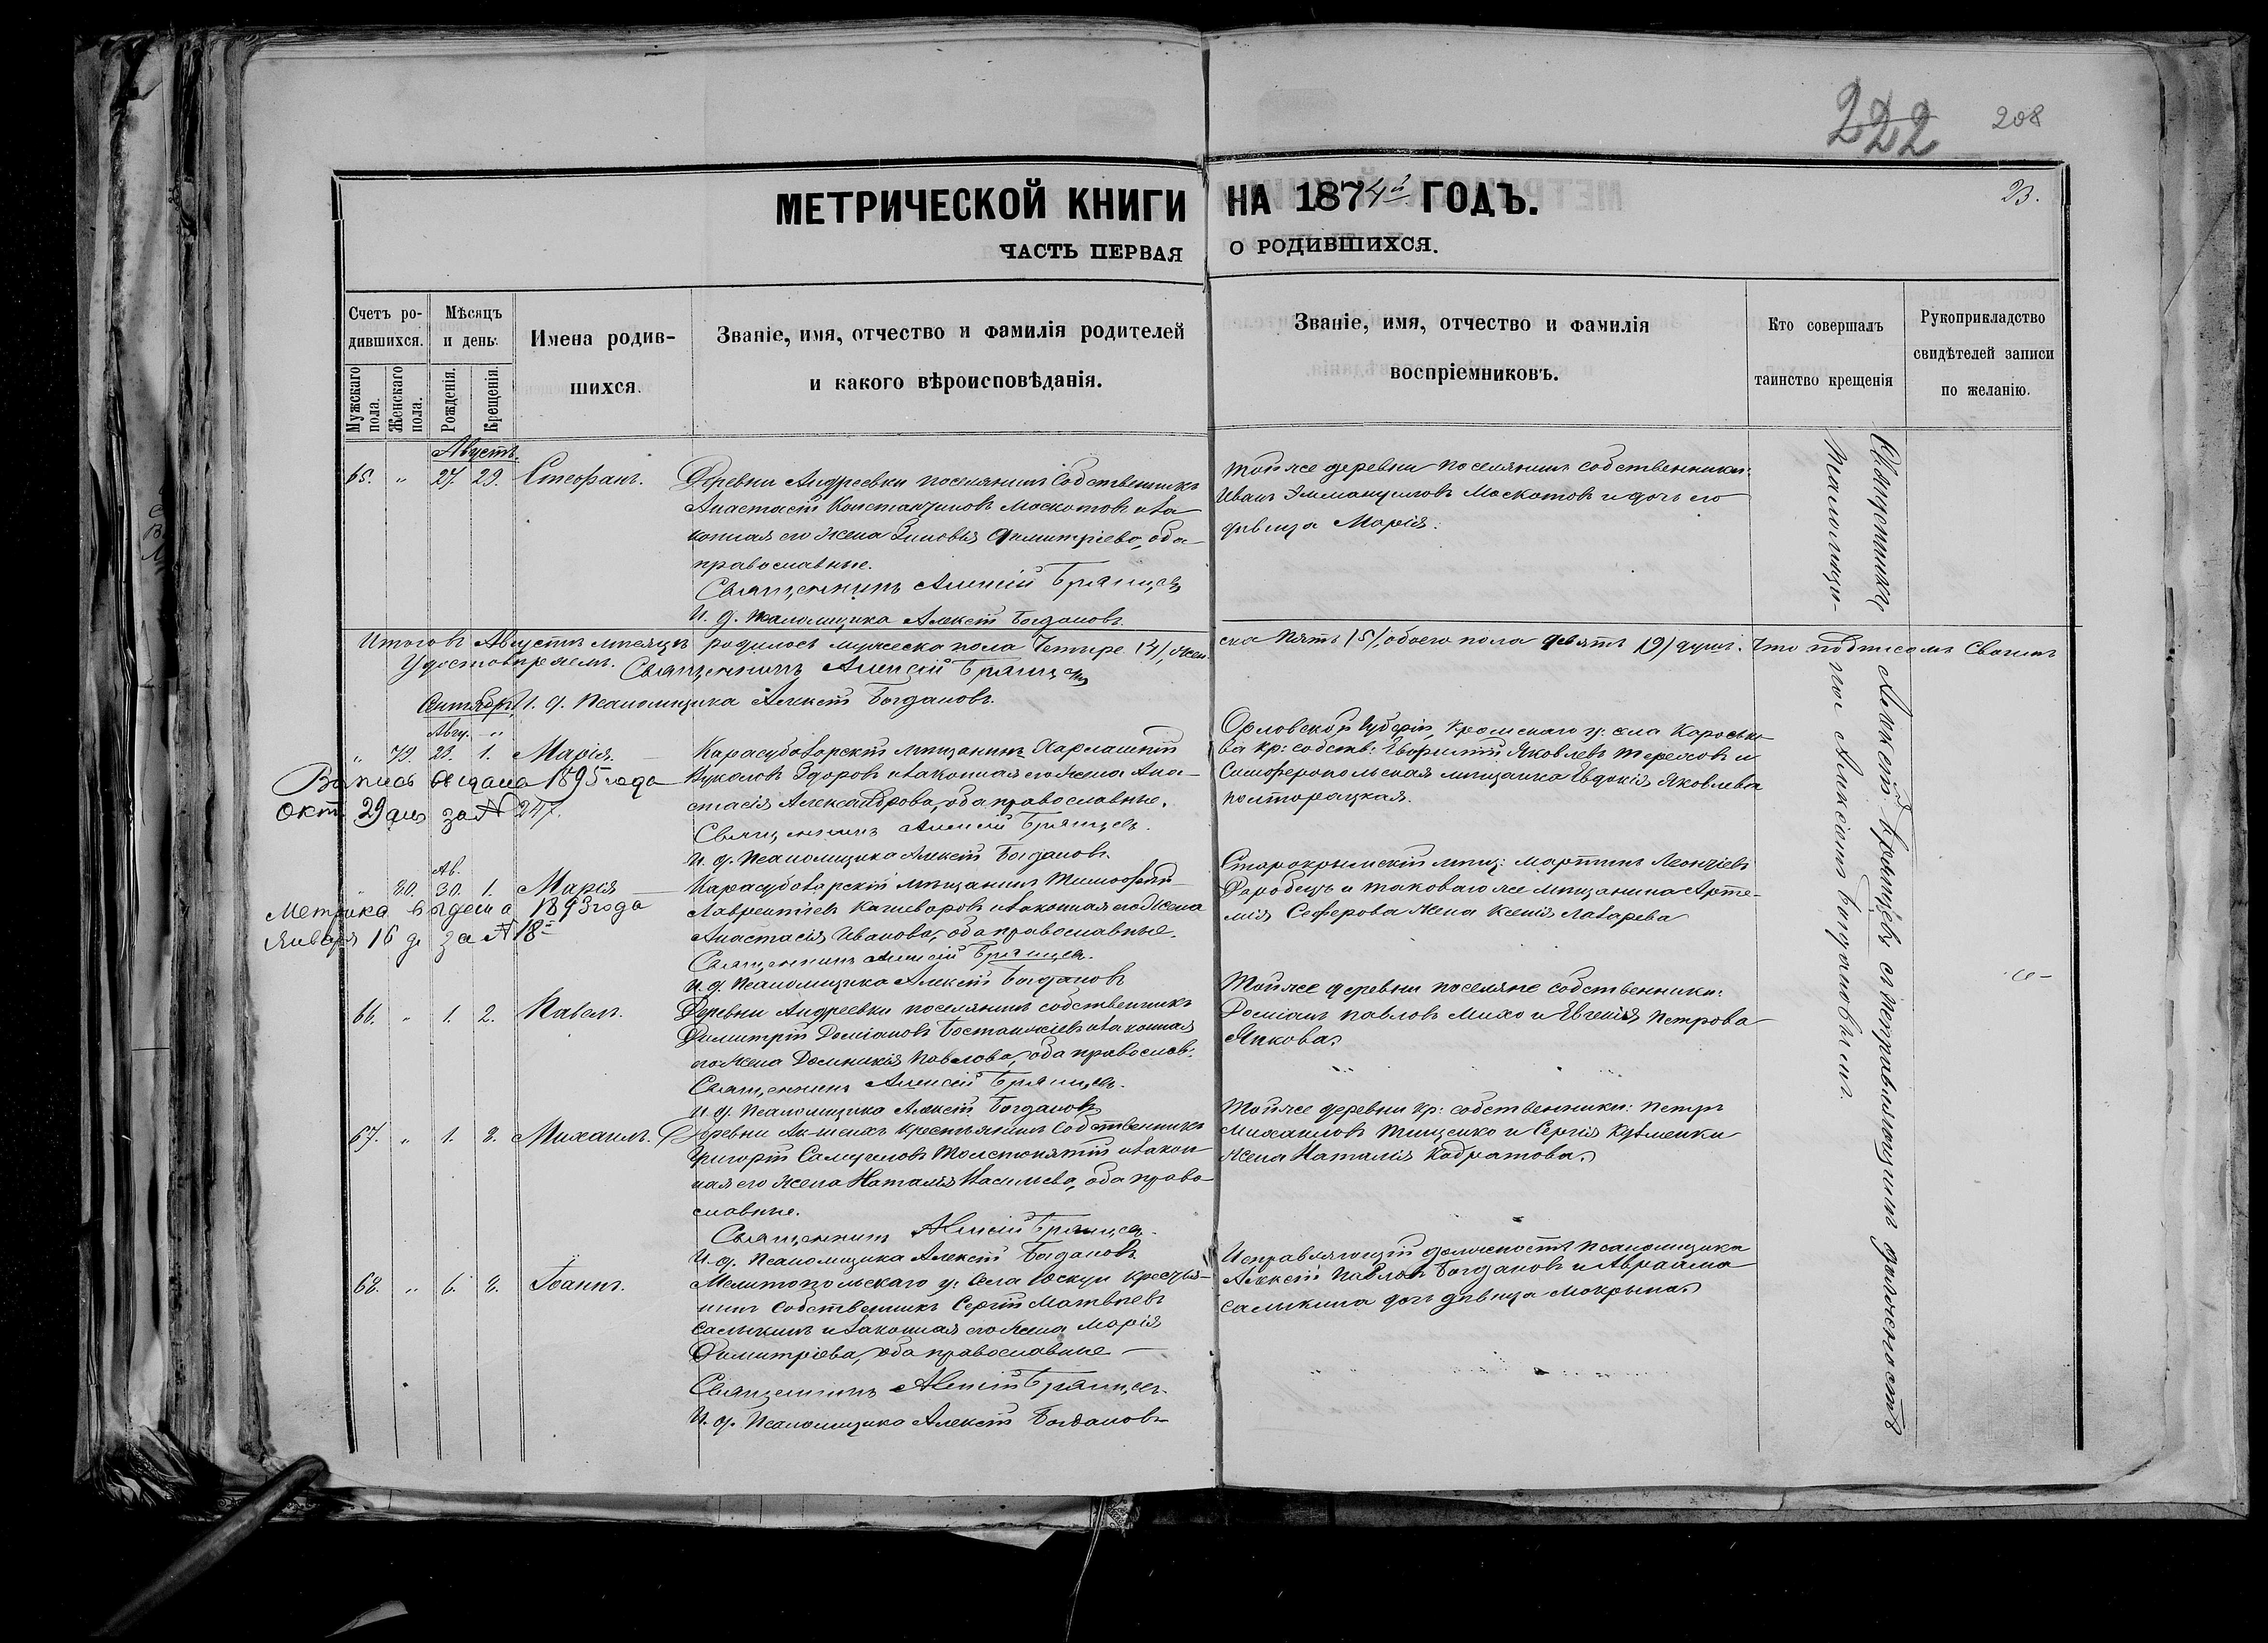 222 208
МЕТРИЧЕСКОЙ КНИГИ НА 1874й ГОДЪ.
23.
ЧАСТЬ ПЕРВАЯ О РОДИВШИХСЯ.
Счетъ ро-
дившихся.
Мужскаго пола.
Женскаго пола.
Мѣсяцъ
и день.
Рожденія.
Крещенія.
Имена родив-
шихся.
Званіе, имя, отчество и фамилія родителей
и какого вѣроисповѣданія.
Званіе, имя, отчество и фамилія
воспріемниковъ.
Кто совершалъ
таинство крещенія
Рукоприкладство
свидѣтелей записи
по желанію.
Августъ.
65. " 27. 29. Стефанъ.
Деревни Андреевки поселянинъ собственникъ
Анастасій Константиновъ Москотовъ и за
конная его жена Зиновія Димитріева, оба
православные.
Священникъ Алексій Брянцевъ
И. д. псаломщика Алексій Богдановъ.
Той же деревни поселянинъ собственникъ:
Иванъ Эммануиловъ Москотовъ и дочь его
дѣвица Марія.
Итого въ Августѣ мѣсяцѣ родилось мужеска пола Четыре (4), жен
ска пять (5), обоего пола девять (9) душъ. Что подписомъ своимъ
Удостовѣряемъ. Священникъ Алексій Брянцевъ
И. д. Псаломщика Алексій Богдановъ.
Сентябрь
Авгу. "
" 79. 23. 1. Марія.
Карасубазарскій мѣщанинъ Харлампій
Здоровъ и законная его жена Ана-
стасія Александрова, оба православные.
Священникъ Алексій Брянцевъ.
И. д. Псаломщика Алексій Богдановъ.
Орловской губерніи, Кромскаго у: села
кр: собств: Яковлевъ Тереховъ и
Симферопольская мѣщанка Евдокія Яковлева
Полторацкая.
Запись выдана 1895 года
Окт. 29 дня за № 247.
Ав.
" 80. 30. 1. Марія
Карасубазарскій мѣщанинъ Тимофей
Лаврентіевъ и законная его жена
Анастасія Иванова, оба православные.
Священникъ Алексій Брянцевъ.
И. д. Псаломщика Алексій Богдановъ
Старокрымскій мѣщ: Мартинъ Леонтіевъ
и таковаго же мѣщанина Арте-
мія Сеферова жена Ксенія Лазарева
Метрика выдана 1893 года
Января 16 д. за № 18
66. " 1. 2. Павелъ.
Деревни Андреевки поселянинъ собственникъ
Димитрій Даміановъ и законная
его жена Домникія Павлова, оба православ:
Священникъ Алексій Брянцевъ.
И. д. Псаломщика Алексій Богдановъ
Той же деревни поселяне собственники:
Даміанъ Павловъ Михо и Евгенія Петрова
Янкова.
67. " 1. 8. Михаилъ.
Деревни Ак-шеихъ крестьянинъ собственникъ
Григорій Самуиловъ и закон
ная его жена Наталія Васильева, оба право
славные.
Священникъ Алексій Брянцевъ.
И. д. Псаломщика Алексій Богдановъ
Той же деревни кр: собственники: Петръ
Михаиловъ Тищенко и Сергія Кузменки
жена Наталія
68. " 6. 8. Іоаннъ.
Мелитопольскаго у: села крестья-
нинъ собственникъ Сергій Матвѣевъ
Салыкинъ и законная его жена Марія
Димитріева, оба православные
Священникъ Алексій Брянцевъ.
И. д. Псаломщика Алексій Богдановъ
Исправляющій должность псаломщика
Алексій Павловъ Богдановъ и Авраама
Салыкина дочь дѣвица Мокрына.
Священникъ Алексій Брянцевъ съ исправляющимъ должность
псаломщи-
ка Алексіемъ Богдановымъ.